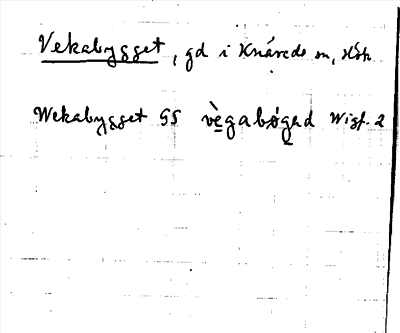 Vekabygget, gd i Knäreds sn, Höks
Wekabygget GS vègabögəd Wigf. 2